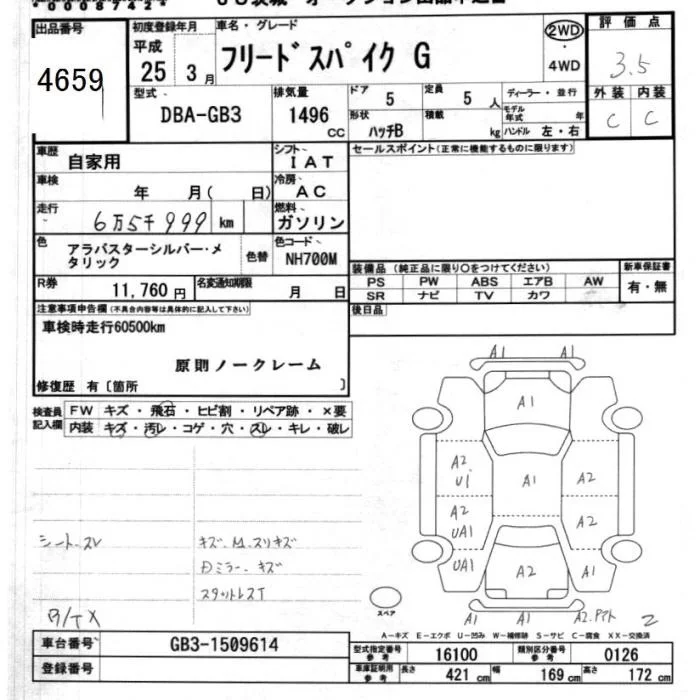 出品番号
4659
初度登録年月
平成
25 3月
車名・グレード
フリードスパイク G
2WD
・
4WD
評価点
3.5
外装 内装
C C
型式
DBA-GB3
排気量
1496
CC
ドア
5
定員
5 人
形状
ハッチB
積載
kg
ディーラー・並行
モデル年式 年
ハンドル 左・右
車歴
自家用
シフト
IAT
セールスポイント(正常に機能するものに限ります)
車検
年 月( 日)
冷房
AC
走行
6万5千999 km
燃料
ガソリン
色
アラバスターシルバー・メ
タリック
色替
色コード
NH700M
R券
11,760 円
名変通知期限
月 日
装備品 (純正品に限り○をつけてください)
PS PW ABS エアB AW
SR ナビ TV カワ
新車保証書
有・無
後日品
注意事項申告欄(不具合内容等は具体的に記入して下さい)
車検時走行60500km
原則ノークレーム
修復歴 有〔箇所 〕
検査員
記入欄
FW キズ・飛石・ヒビ割・リペア跡・×要
内装 キズ・汚レ・コゲ・穴・スレ・キレ・破レ
シート.スレ
キズ.M.スリキズ
Dミラー.キズ
スタットレスT
A1 A1
A1
A2
U1
A1
A2
A2
UA1
A2
UA1
A2
A1
スペア
A1 A1 A2.
2
A-キズ E-エクボ U-凹み W-補修跡 S-サビ C-腐食 XX-交換済
車台番号
GB3-1509614
登録番号
型式指定番号
参考
16100
類別区分番号
参考
0126
車庫証明用
参考
長さ
421 cm
幅
169 cm
高さ
172 cm